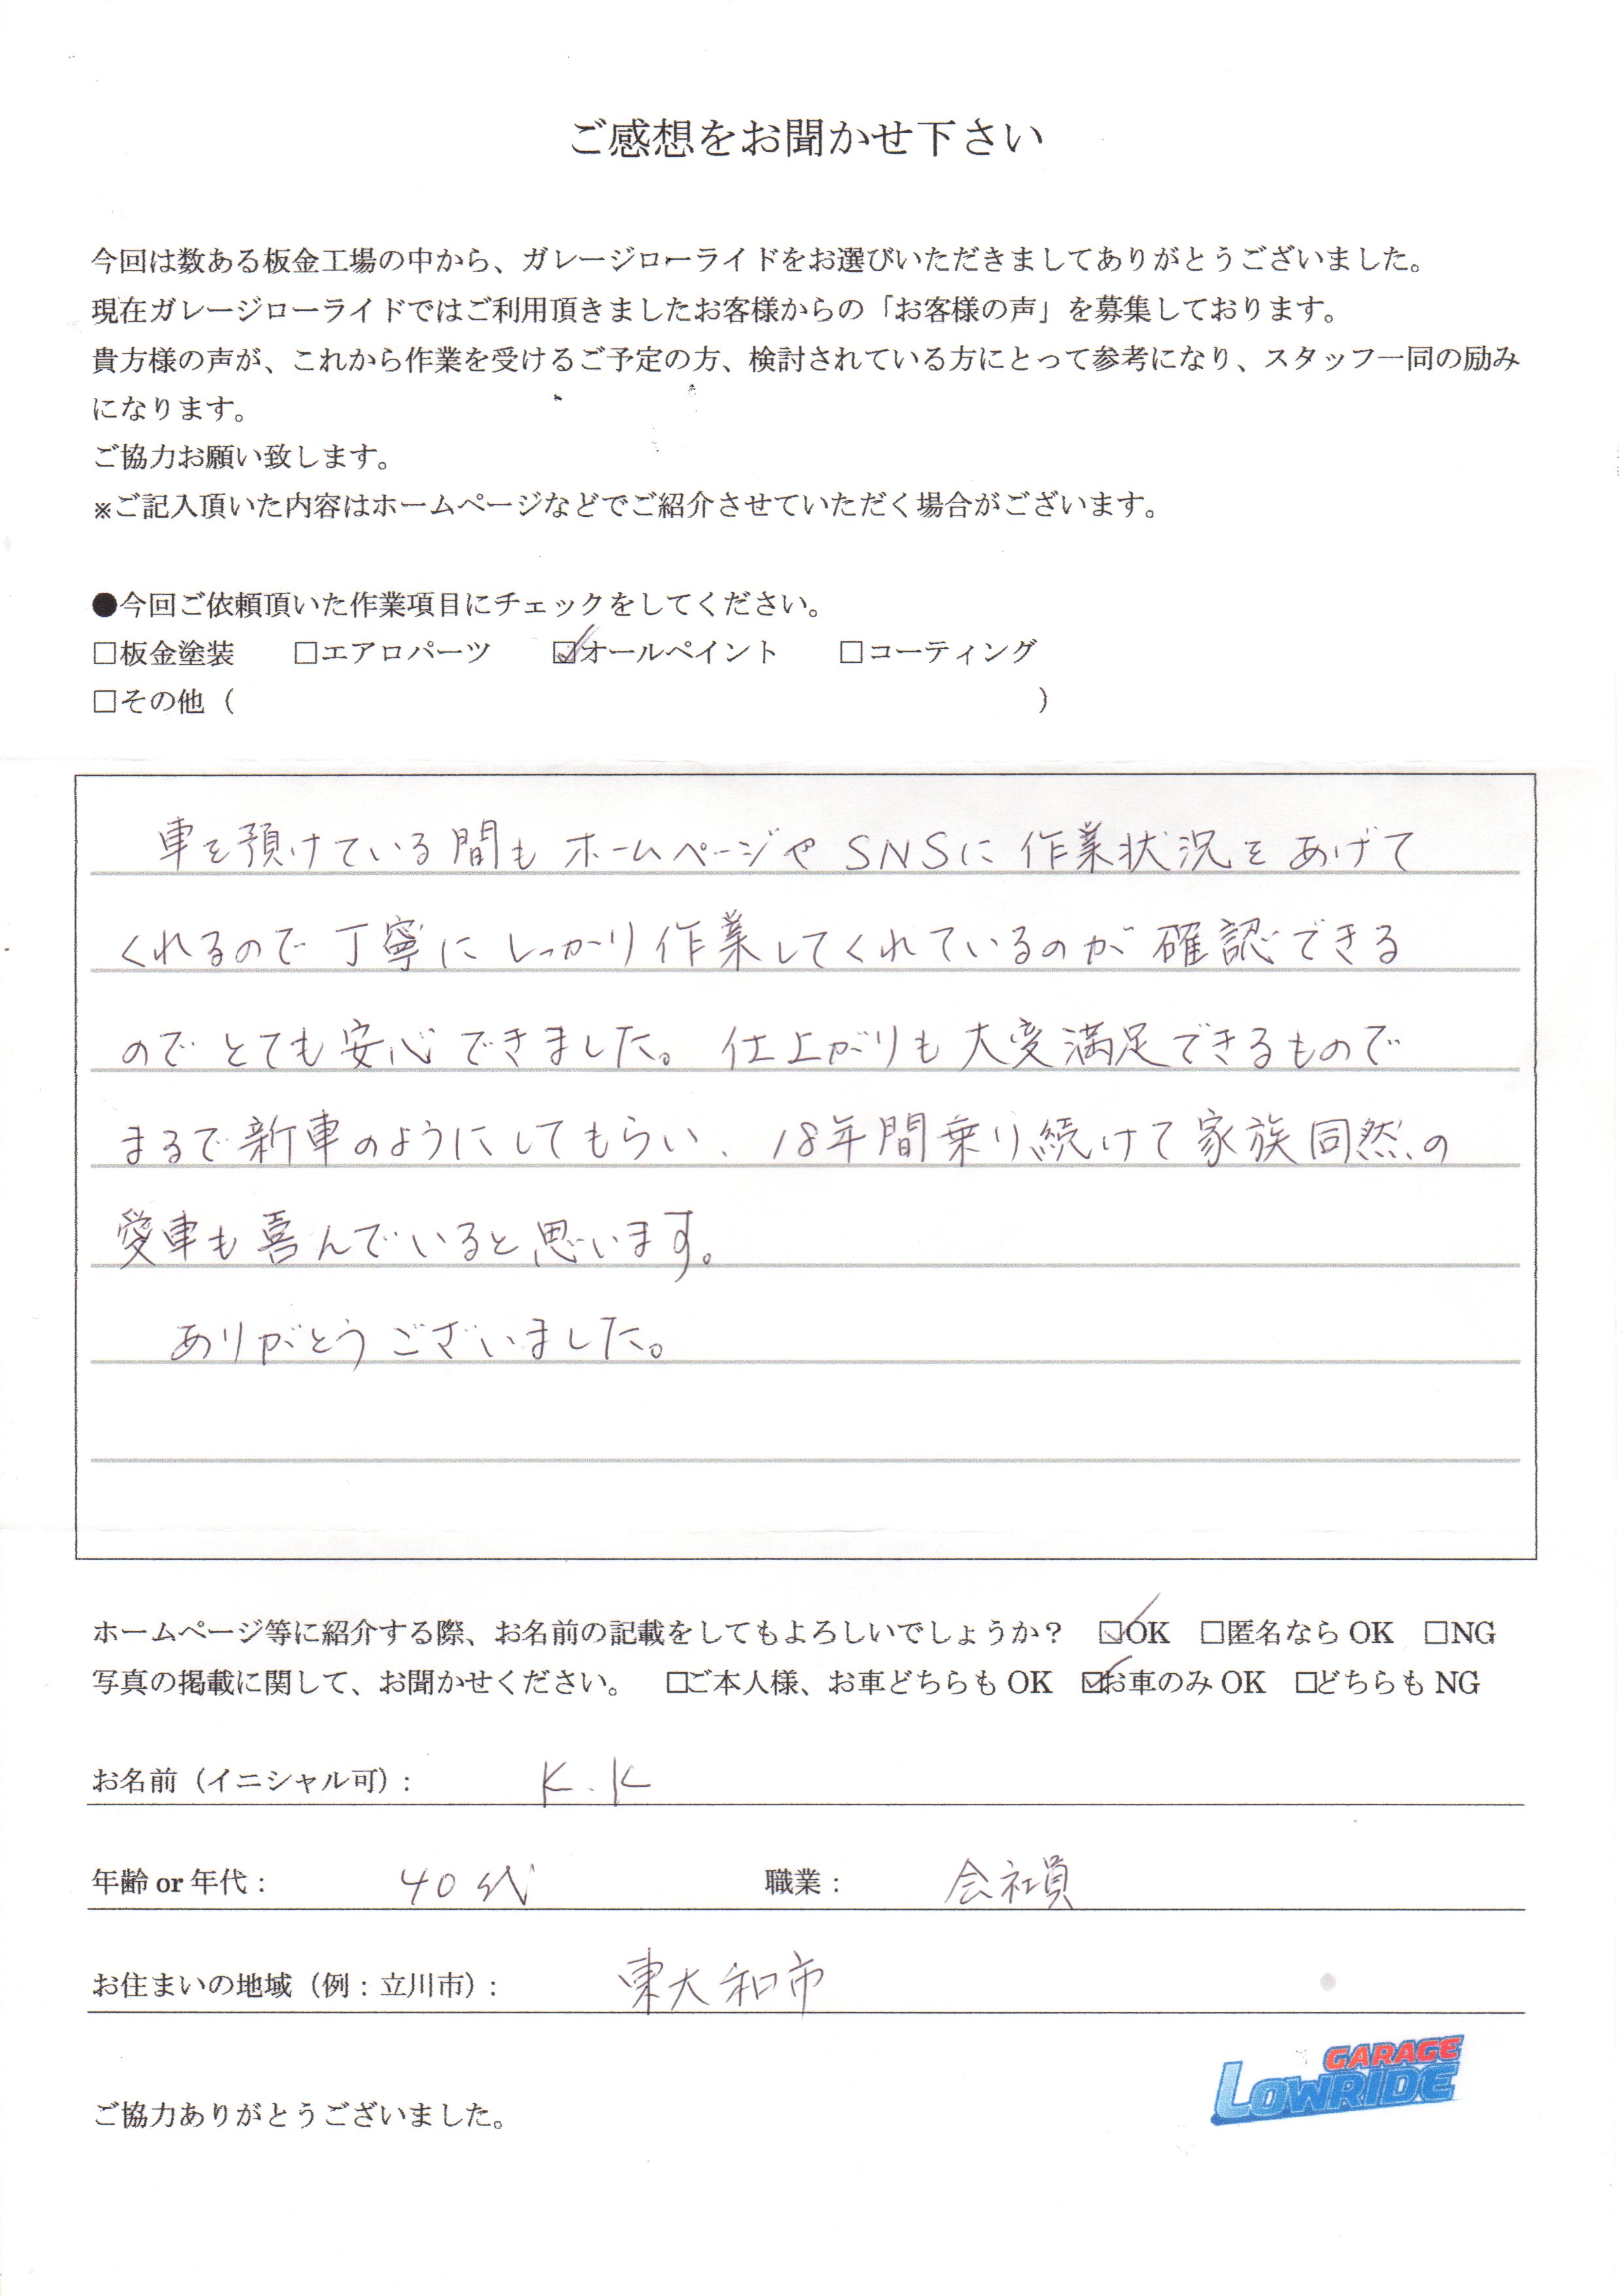 ご感想をお聞かせ下さい
今回は数ある板金工場の中から、ガレージローライドをお選びいただきましてありがとうございました。
現在ガレージローライドではご利用頂きましたお客様からの「お客様の声」を募集しております。
貴方様の声が、これから作業を受けるご予定の方、検討されている方にとって参考になり、スタッフ一同の励み
になります。
ご協力お願い致します。
※ご記入頂いた内容はホームページなどでご紹介させていただく場合がございます。
●今回ご依頼頂いた作業項目にチェックをしてください。
□板金塗装 □エアロパーツ ☑オールペイント □コーティング
□その他（ ）
車を預けている間もホームページやSNSに作業状況をあげて
くれるので丁寧にしっかり作業してくれているのが確認できる
のでとても安心できました。仕上がりも大変満足できるもので
まるで新車のようにしてもらい、18年間乗り続けて家族同然の
愛車も喜んでいると思います。
ありがとうございました。
ホームページ等に紹介する際、お名前の記載をしてもよろしいでしょうか？ ☑OK □匿名なら OK □NG
写真の掲載に関して、お聞かせください。 □ご本人様、お車どちらも OK ☑お車のみ OK □どちらも NG
お名前（イニシャル可）： K.K
年齢 or 年代： 40代 職業： 会社員
お住まいの地域（例：立川市）： 東大和市
GARAGE
LOWRIDE
ご協力ありがとうございました。